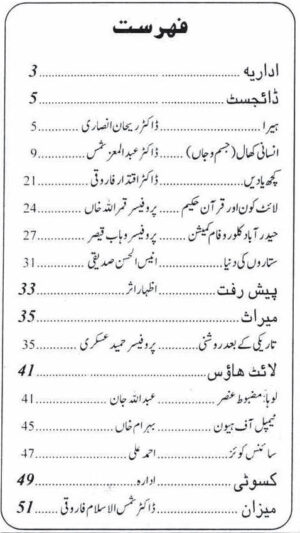 فہرست
اداریہ ........................ 3
ڈائجسٹ ........................ 5
ہیرا ............ ڈاکٹر ریحان انصاری ............ 5
انسانی کھال (جسم و جاں) ..... ڈاکٹر عبدالمعز شمس ............ 9
کچھ یادیں ............ ڈاکٹر اقتدار فاروقی ............ 21
لائٹ کون اور قرآن حکیم ..... پروفیسر قمر اللہ خاں ............ 24
حیدرآباد کلوروفام کمیشن ..... پروفیسر وہاب قیصر ............ 27
ستاروں کی دنیا ............ انیس الحسن صدیقی ............ 31
پیش رفت ............ اظہار اثر ............ 33
میراث ........................ 35
تاریکی کے بعد روشنی ............ پروفیسر حمید عسکری ............ 35
لائٹ ھاؤس ........................ 41
لوہا: مضبوط عنصر ............ عبداللہ جان ............ 41
ٹیمپل آف ہیون ............ بہرام خاں ............ 45
سائنس کوئز ............ احمد علی ............ 47
کسوٹی ............ ادارہ ............ 49
میزان ............ ڈاکٹر شمس الاسلام فاروقی ............ 51